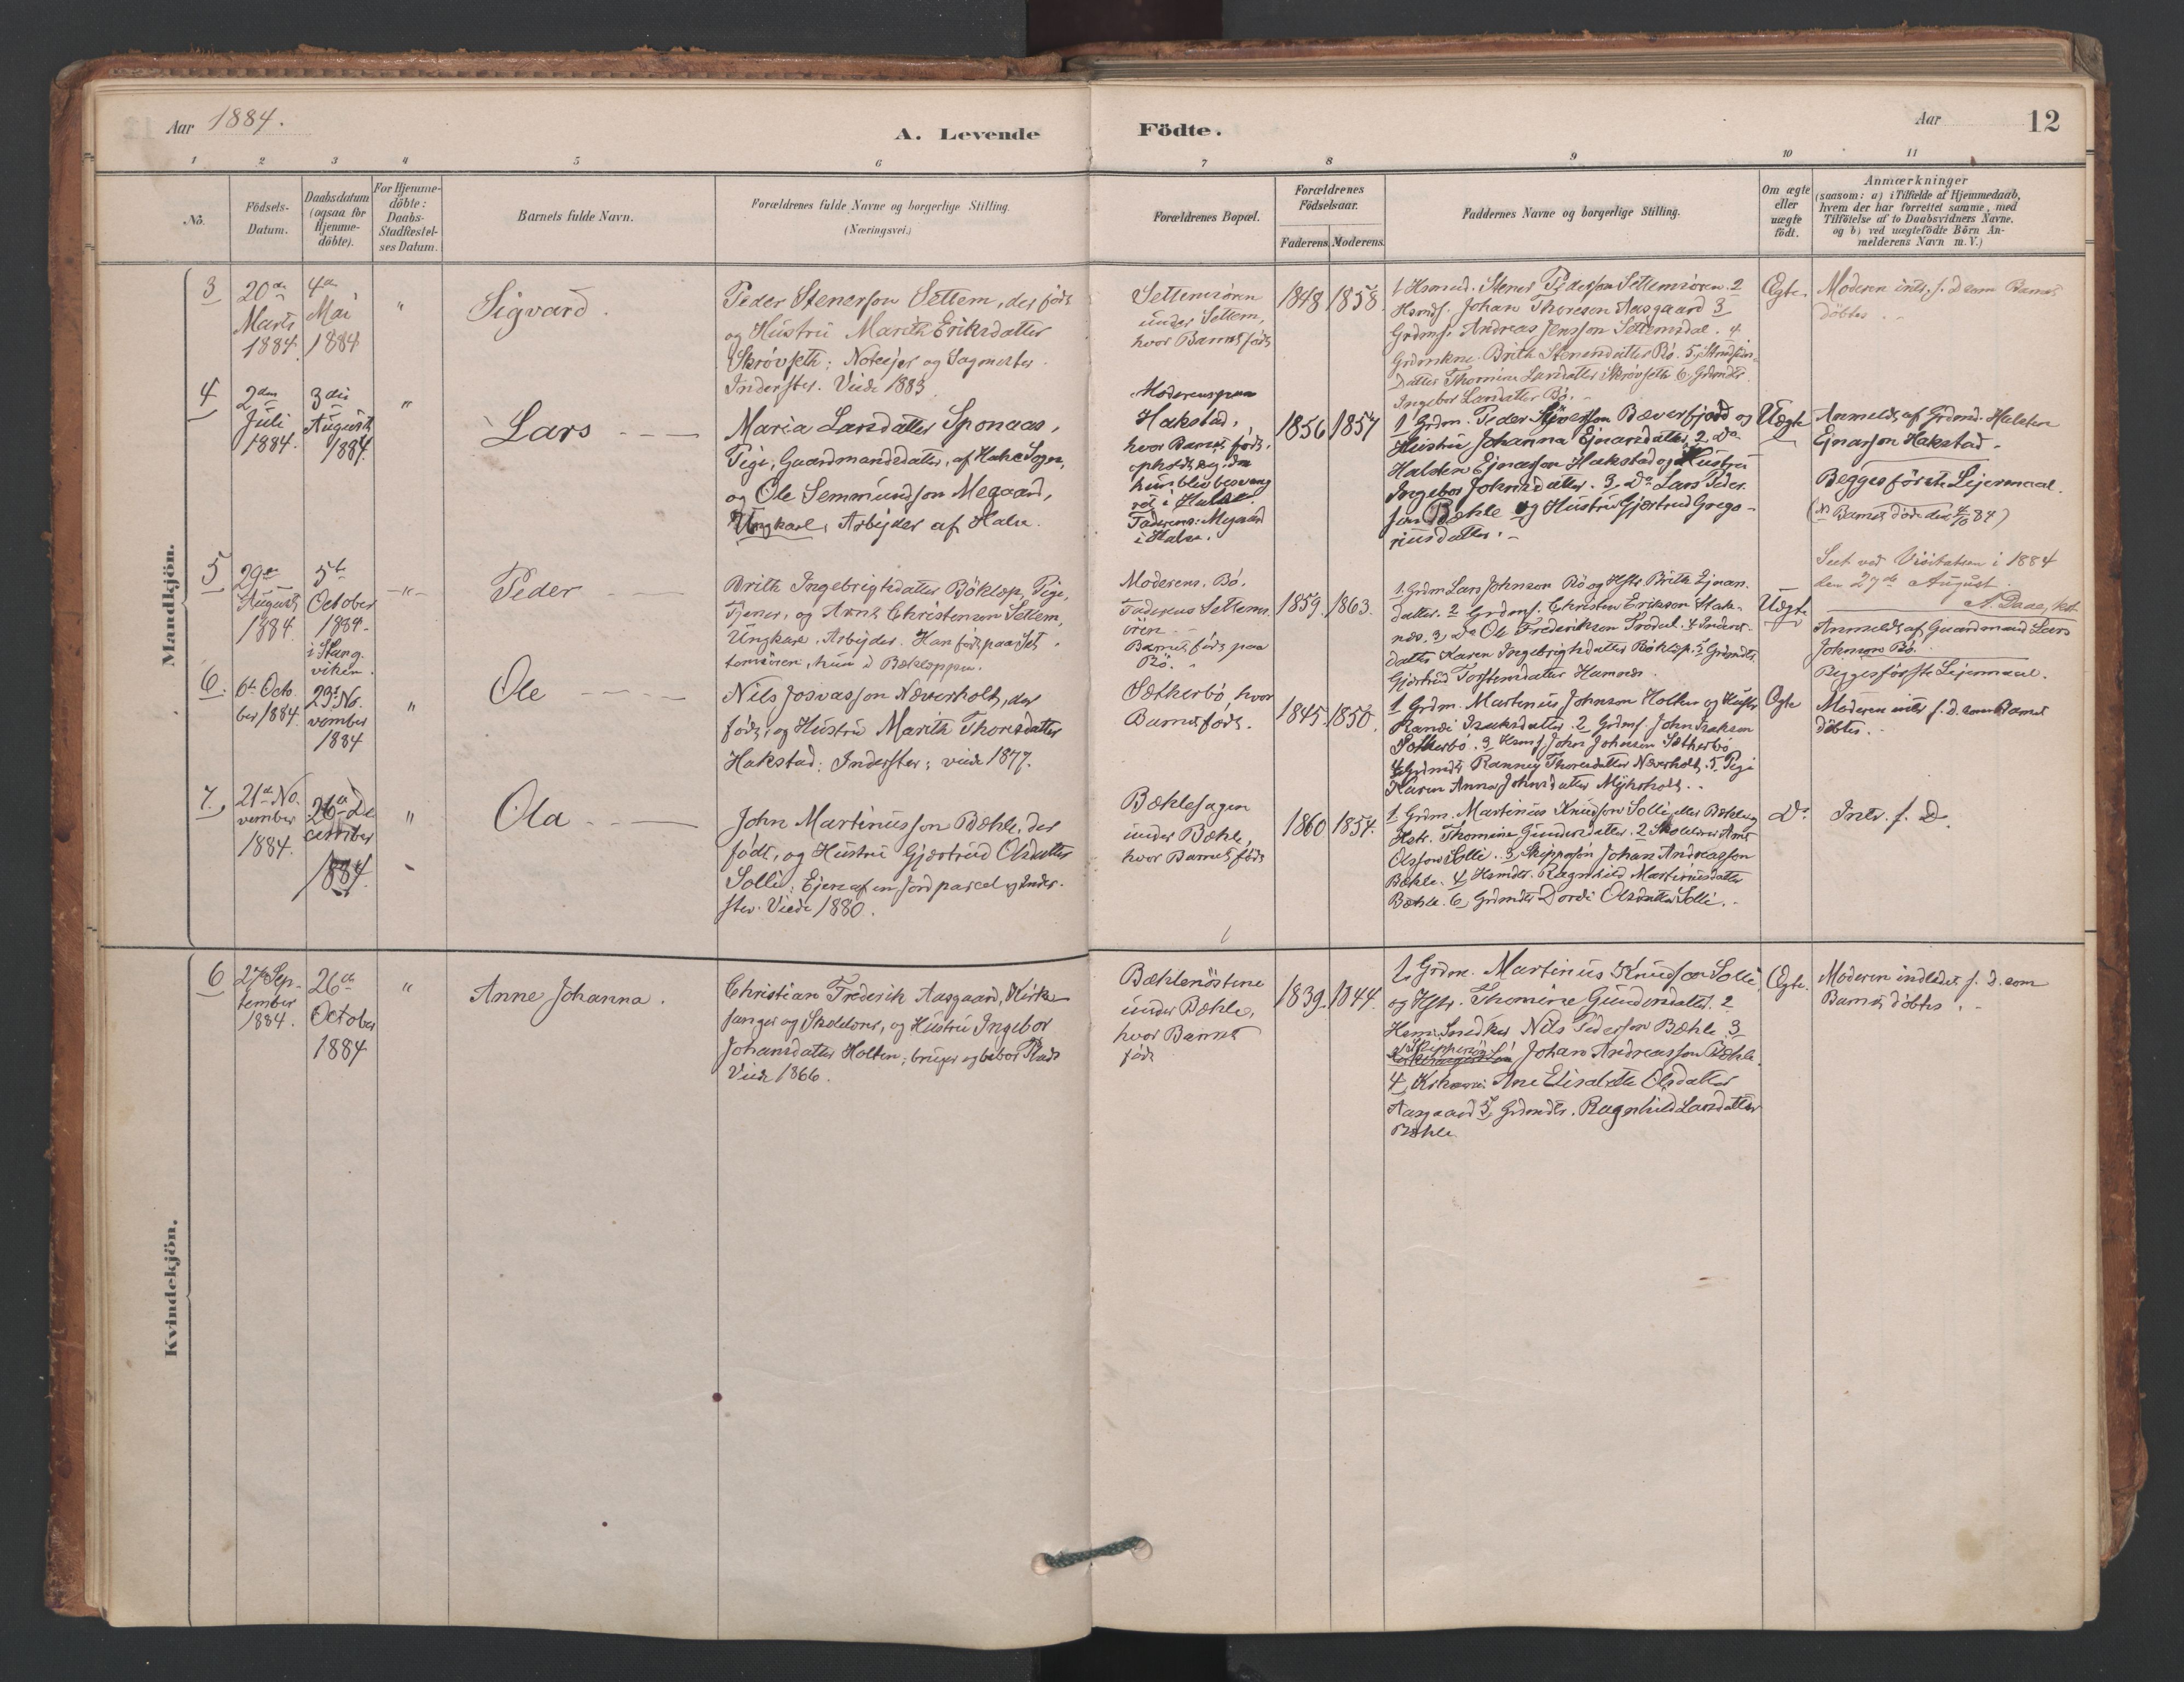 Aar 1884.
A. Levende Födte.
Aar
12
1
2
3
4
5
6
7
8
9
10
11
No.
Födsels-
Datum.
Daabsdatum
(ogsaa for
Hjemme-
döbte).
For Hjemme-
döbte:
Daabs-
Stadfæstel-
ses Datum.
Barnets fulde Navn.
Forældrenes fulde Navne og borgerlige Stilling.
(Næringsvei.)
Forældrenes Bopæl.
Forældrenes
Födselsaar.
Faderens Moderens.
Faddernes Navne og borgerlige Stilling.
Om ægte
eller
uægte
födt.
Anmærkninger
(saasom: a) i Tilfælde af Hjemmedaab,
hvem der har forrettet samme, med
Tilföielse af to Daabsvidners Navne,
og b) ved uægtefödte Börn An-
melderens Navn m. V.)
Mandkjön.
3
20de
Marts
1884.
4de
Mai
1884
"
Sigvard.
Peder Stenerson Settem, der födt
og Hustru Marith Eriksdatter
Skrövseth; Noteejer og Sagmester.
Inderster. Viede 1883.
Settemsören
under Settem,
hvor Barnet födt
1848
1858.
1 Hsmnd. Stener Pederson Settemsören. 2
Hsmdf. Johan Thoreson Aasgaard 3
Grdmf. Andreas Jensson Settemsdal. 4
Grdmkne. Brith Stenersdatter Bö. 5,
Datter Thomine Larsdatter Skrövseth 6, Grdmdtr.
Ingebor Larsdatter Bö. -
Ægte.
Moderen intr. f. D. som Barnet
döbtes. -
4
2den
Juli
1884.
3die
August
1884.
"
Lars
Maria Larsdatter Sponaas,
Pige, Gaardmandsdatter, af Halse Sogn,
og Ole Semmundson Megaard,
Ungkarl, Arbejder af Halse.
Moderens paa
Hakstad,
hvor Barnet födt,
opholdt sig, da
hun blev besvang
ret i Halse.
Faderens: Megaard
i Halse.
1856
1857
1, Grdm. Peder Sjöversson Bæverfjord og
Hustru Johanna Ejnarsdatter, 2, Do
Halsten Ejnarson Hakstad og Hustru
Ingebor Johnsdatter. 3, Do Lars Peder
son Bæhle og Hustru Gjertrud Grego-
riusdatter. -
Uægte
Anmeldt af Grdmd. Halsten
Ejnarson Hakstad.
Begges förste Lejermaal.
(NB Barnet döde den 4/10 84)
Seet ved Visitatsen i 1884
den 27de August.
5
29de
August
1884.
5te
October
1884.
i Stang-
viken.
-"-
Peder
Brith Ingebrigtsdatter Böklep, Pige,
Tjener, og Arnt Christenson Settem,
Ungkarl, Arbejder. Han födt paa Set
temsören, hun i Bökleppen.
Moderens, Bö,
Faderens Settems-
ören. -
Barnet födt paa
Bö.
1859.
1863.
1, Grdm Lars Johnson Bö og Hstr. Brith Ejnars
datter. 2 Grdmf. Christen Erikson Hak-
næs, 3, Do Ole Frederikson
datter Karen Ingebrigtsdatter Böklep. 5 Grdmdtr.
Gjertrud Torstensdatter Hamnes.
Uægte
Anmeldt af Gaardmand Lars
Johnson Bö.
Begges förste Lejermaal.
6.
6te Octo
ber 1884.
23de No-
vember
1884
"
Ole
Nils Josvasson Næverholt, der
födt, og Hustru Marith Thoresdatter
Hakstad; Inderster; viede 1877.
Sætherbö, hvor
Barnet födt.
1845.
1850.
1, Grdm. Martinus Johnson Holten og Hustr
Randi Isaksdatter. 2 Grdmf. John Isakson
Sætherbö. 3 Hsmf. John Johnson Sætherbö
4, Grdmdtr Ranney Thoresdatter Næverholt. 5, Pige
Karen Anna Johnsdatter Myhrholt.
Ægte
Moderen intr. f. D. som Barnet
döbtes. -
7.
21de No-
vember
1884.
26de De
cember
1884.
"
Ola
John Martinusson Bæhle, der
födt, og Hustru Gjertrud Olsdatter
Solli; Ejere af en Jordparcel og Inder-
ster. Viede 1880.
Bæhlesagen
under Bæhle,
hvor Barnet födt
1860
1854.
1, Grdm. Martinus Knudson Solli eller Bæhle og
Hstr. Thomine Gundersdatter. 2 Skolelærer Arnt
Olsson Solli. 3, Skippersön Johan Andreasson
Bæhle. 4, Hsmdtr. Ragnhild Martinusdatter
Bæhle. 6, Grdmdtr Dordi Olsdatter Solli. -
Do
Intr. f. D.
Kvindekjön.
6
27de Sep-
tember
1884.
26de
October
1884
"
Anne Johanna.
Christian Frederik Aasgaard, Kirke-
sanger og Skolelærer, og Hustru Ingebor
Johansdatter Holten; bruger og bebor Plads
Viede 1866.
Bæhlenöstene
under Bæhle,
hvor Barnet
födt
1839.
1844.
1, Grdm. Martinus Knudson Solli,
og Hstr. Thomine Gundersdatter. 2
Hsm. Snedker Nils Pederson Bæhle. 3
Skippersön Johan Andreasson Bæhle
4, Ane Elisabeth Olsdatter
Aasgaard 5, Grdmdtr. Ragnhild Larsdatter
Bæhle
Ægte.
Moderen indledet f. D. som
Barnet döbtes. -